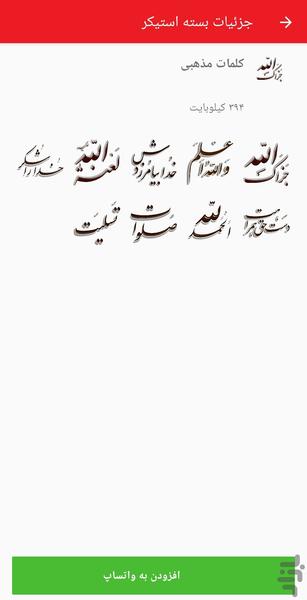 جزئیات بسته استیکر
کلمات مذهبی
جزاک الله
۳۹۴ کیلوبایت
جزاک الله
والله اعلم
خدا بیامرزدش
لعنة الله
خدا را شکر
دست حق همرات
الحمدلله
صلوات
تسلیت
افزودن به واتساپ
بازار